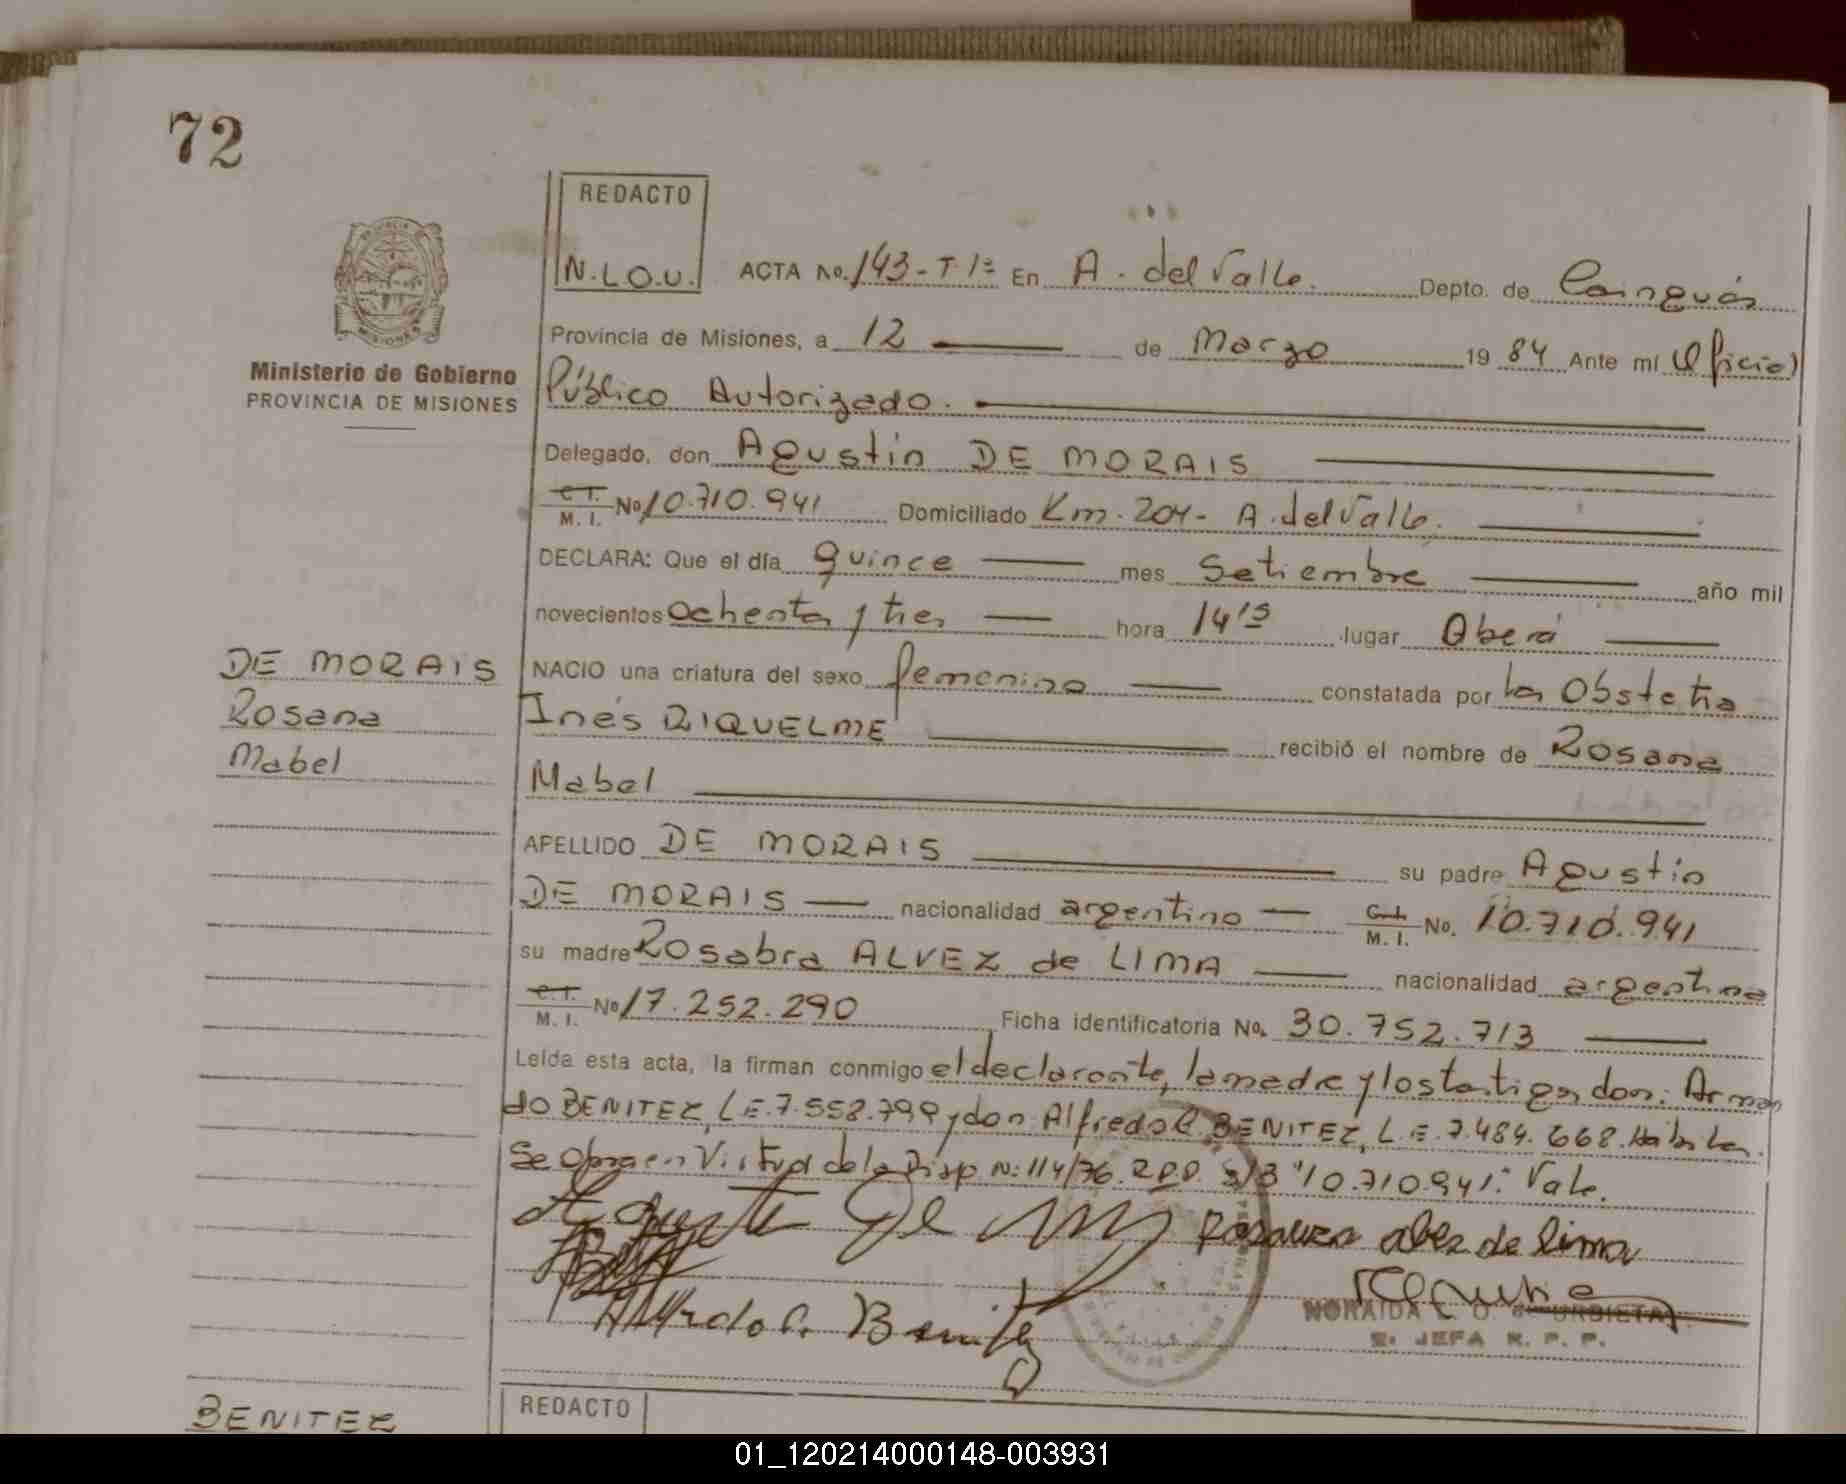 72
REDACTO
N.L.O.U.
ACTA No. 143-T 1º En A. del Valle. Depto. de Cainguás
Provincia de Misiones, a 12 de Marzo 1984 Ante mí Oficial
Ministerio de Gobierno
PROVINCIA DE MISIONES
Público Autorizado.
Delegado, don Agustin DE MORAIS
C.I. M. I. No 10.710.941 Domiciliado Km. 204- A. del Valle.
DECLARA: Que el día quince mes Setiembre año mil
novecientos ochenta y tres hora 14'15 lugar Oberá
DE MORAIS
Rosana
Mabel
NACIO una criatura del sexo femenino constatada por la Obstetra
Inés RIQUELME recibió el nombre de Rosana
Mabel
APELLIDO DE MORAIS su padre Agustin
DE MORAIS nacionalidad argentino C.I. M. I. No. 10.710.941
su madre Rosabra ALVEZ de LIMA nacionalidad argentina
C.I. M. I. No 17.252.290 Ficha identificatoria No. 30.752.713
Leída esta acta, la firman conmigo el declarante, la madre y los testigos don: Arman
do BENITEZ, L.E. 7.558.799 y don Alfredo R. BENITEZ, L.E. 7.484.668.
Se obra en Virtud de la Disp. N: 114/76. R.P.P. S/B "10.710.941." Vale.
Rosaura albez de lima
Alfredo R. Benitez
NORAIDA L. O. URBIETA
2. JEFA R. P. P.
BENITEZ
REDACTO
01_120214000148-003931